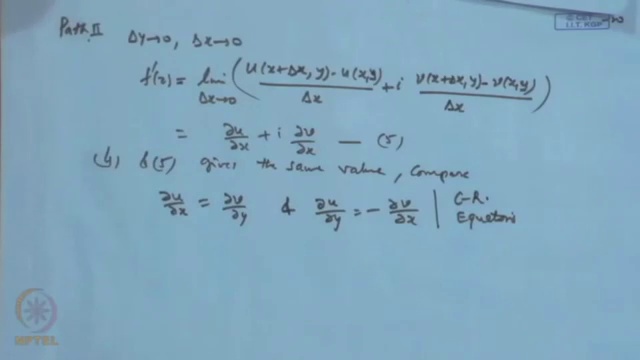 Path II Δy→0, Δx→0
f'(z) = lim Δx→0 ( u(x+Δx, y) - u(x,y) / Δx + i v(x+Δx, y) - v(x,y) / Δx )
= ∂u/∂x + i ∂v/∂x — (5)
(4) & (5) gives the same value, compare
∂u/∂x = ∂v/∂y & ∂u/∂y = - ∂v/∂x | C-R. Equations
© CET
I.I.T. KGP
NPTEL